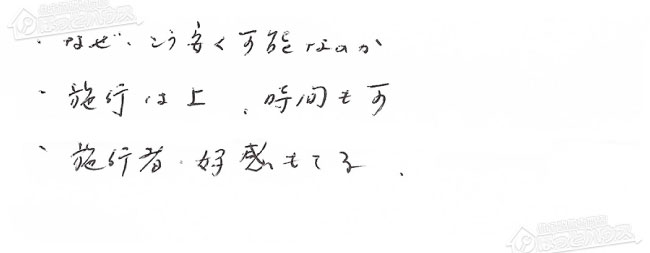 ・なぜ、こう安く可能なのか
・施行は上、時間も可
・施行者、好感もてる.